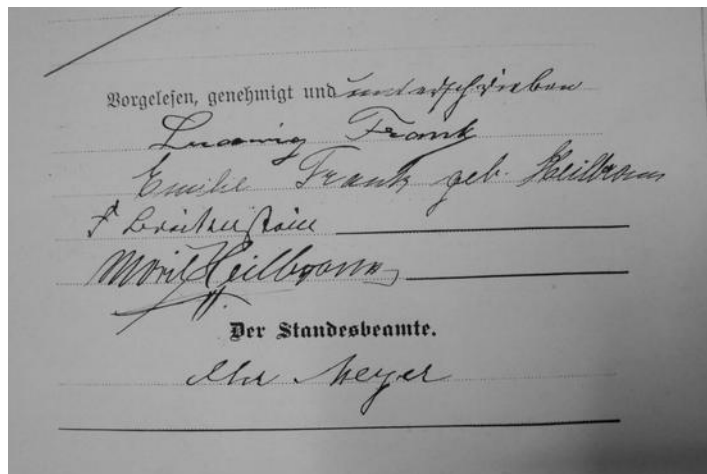 Vorgelesen, genehmigt und unterschrieben
Ludwig Frank
Emilie Frank geb. Heilbronn
Breitenstein
Moritz Heilbronn
Der Standesbeamte.
Meyer